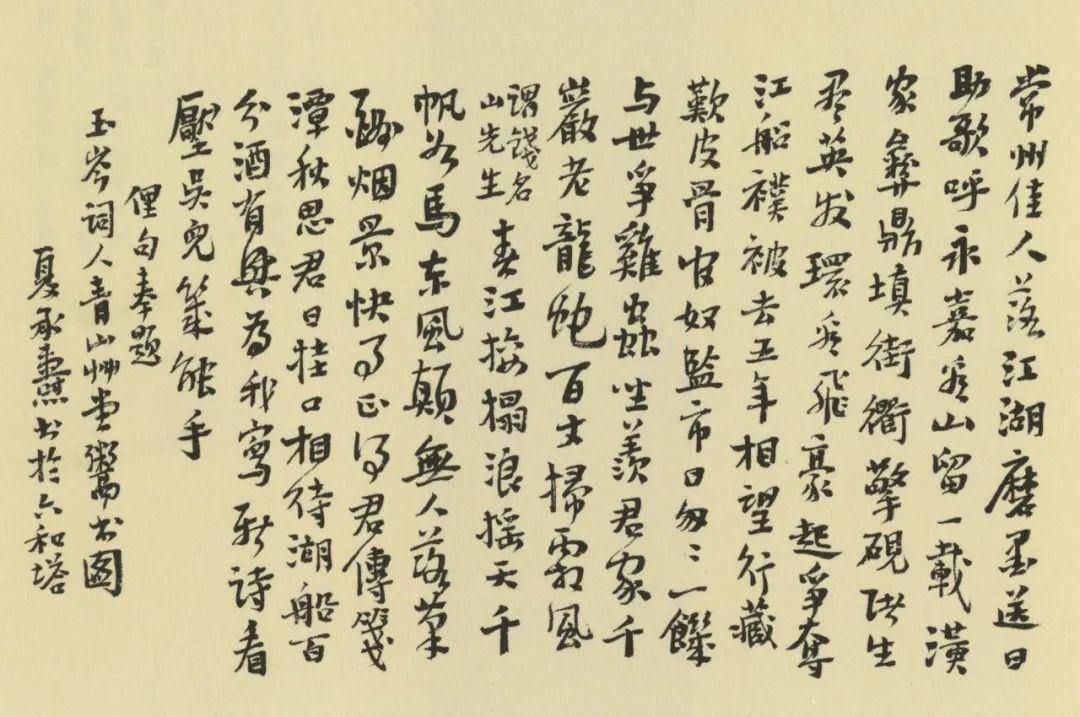 常州佳人落江湖磨墨送日
助歌呼永嘉看山留一載潢
家彝鼎填街衢擎硯諸生
盡英发環看飛豪起爭奪
江船襆被去五年相望行藏
歎皮骨官奴監市日匆々一饌
与世爭雞蟲坐羨君家千
巖老龍蛇百丈掃霜風
謂錢名
山先生
春江接榻浪搖天千
帆如馬東風顛無人落筆
酬烟景快事正得君傳箋
潭秋思君日挂口相待湖船百
分酒有興為我寫新詩看
壓吳兒能手
俚句奉題
玉岑詞人青山艸堂鬻書圖
夏承燾書於六和塔